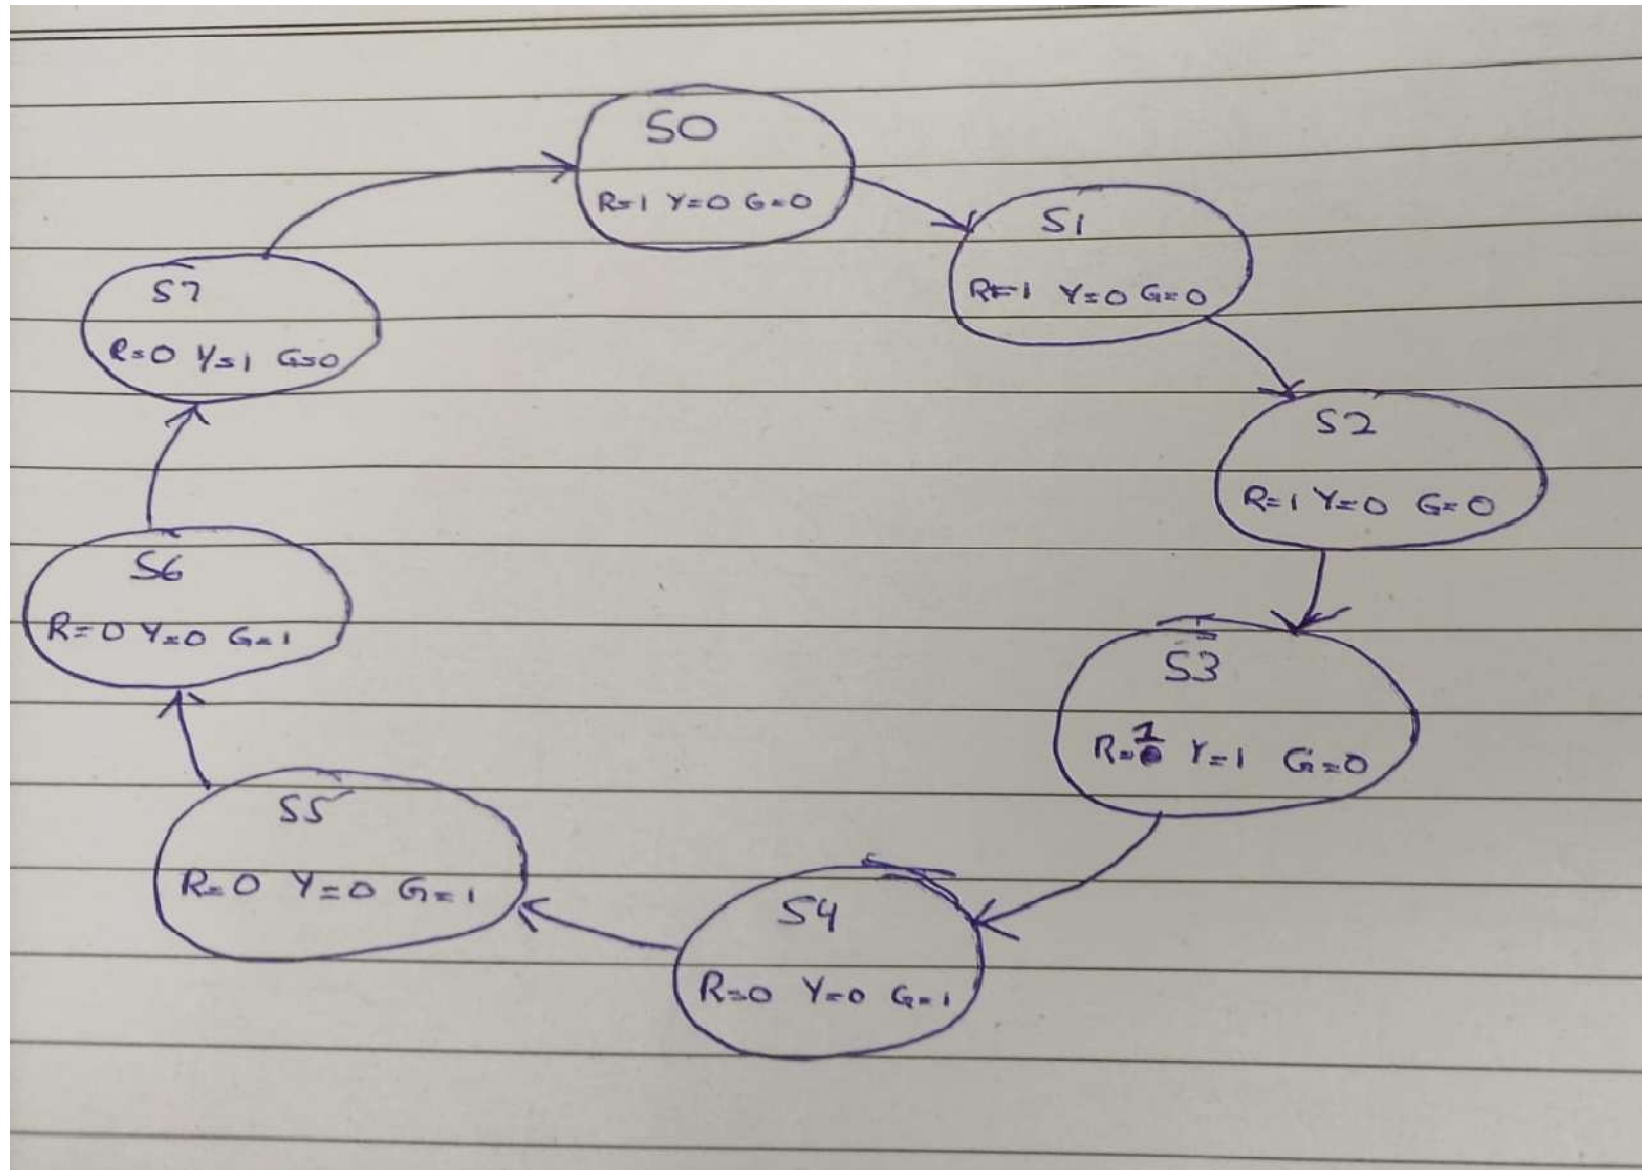 S0
R=1 Y=0 G=0
S1
R=1 Y=0 G=0
S2
R=1 Y=0 G=0
S3
R=1 Y=1 G=0
S4
R=0 Y=0 G=1
S5
R=0 Y=0 G=1
S6
R=0 Y=0 G=1
S7
R=0 Y=1 G=0